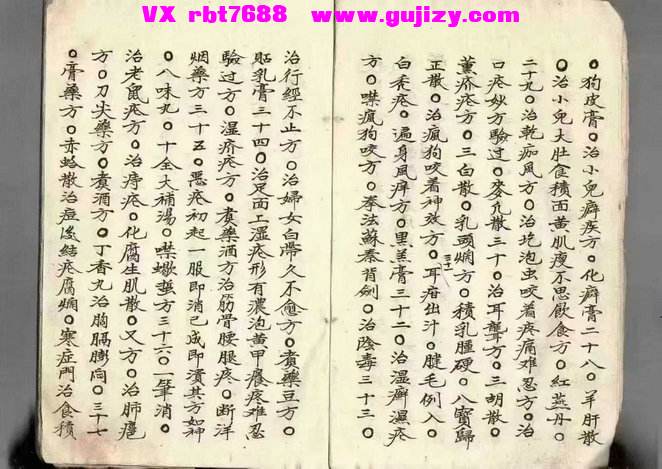 VX rbt7688 www.gujizy.com
○狗皮膏○治小兒癖疾方○化癖膏二十八○羊肝散
○治小兒大肚食積面黃肌瘦不思飲食方○紅燕丹○
二十九○治乾㾴風方○治圪泡虫咬着疼痛难忍方○治
口疮妙方驗过○麥凢散三十○治耳聾方○三胡散○
薰疥疮方○三白散○乳頭烟方○積乳腫硬○八寳歸
正散○治瘋狗咬着神效方○三十一耳疳出汁○睫毛例入○
白禿疮○遍身風痒方○黑羔膏三十二○治湿癬濕疮
方○噤瘋狗咬方○拳法蘇秦背劍○治陰毒三十三○
治行經不止方○治婦女白帶久不愈方○煮藥豆方○
貼乳膏三十四○治足面上湿疮形有濃泡黄甲痒疼难忍
驗过方○湿疥疮方○煮藥酒方治筋骨腰腿疼○断洋
烟藥方三十五○惡疮初起一服即消已成即潰其方如神
○八味丸○十全大補湯○噤蠍蜇方三十六○一筆消○
治老鼠疮方○治痔疮○化腐生肌散○又方○治肺癰
方○刀尖藥方○煮酒方○丁香丸治胸膈膨悶○三十七
○膏藥方○赤蛤散治痘後結疮腐烟○寒症門治食積